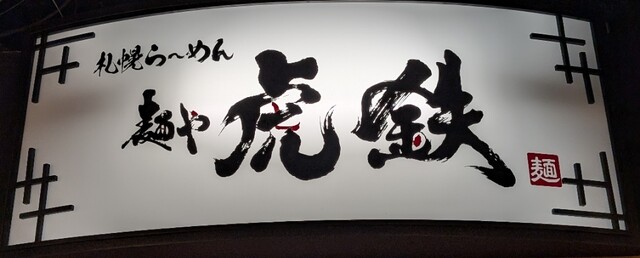 札幌ら～めん
麺や虎鉄
麺